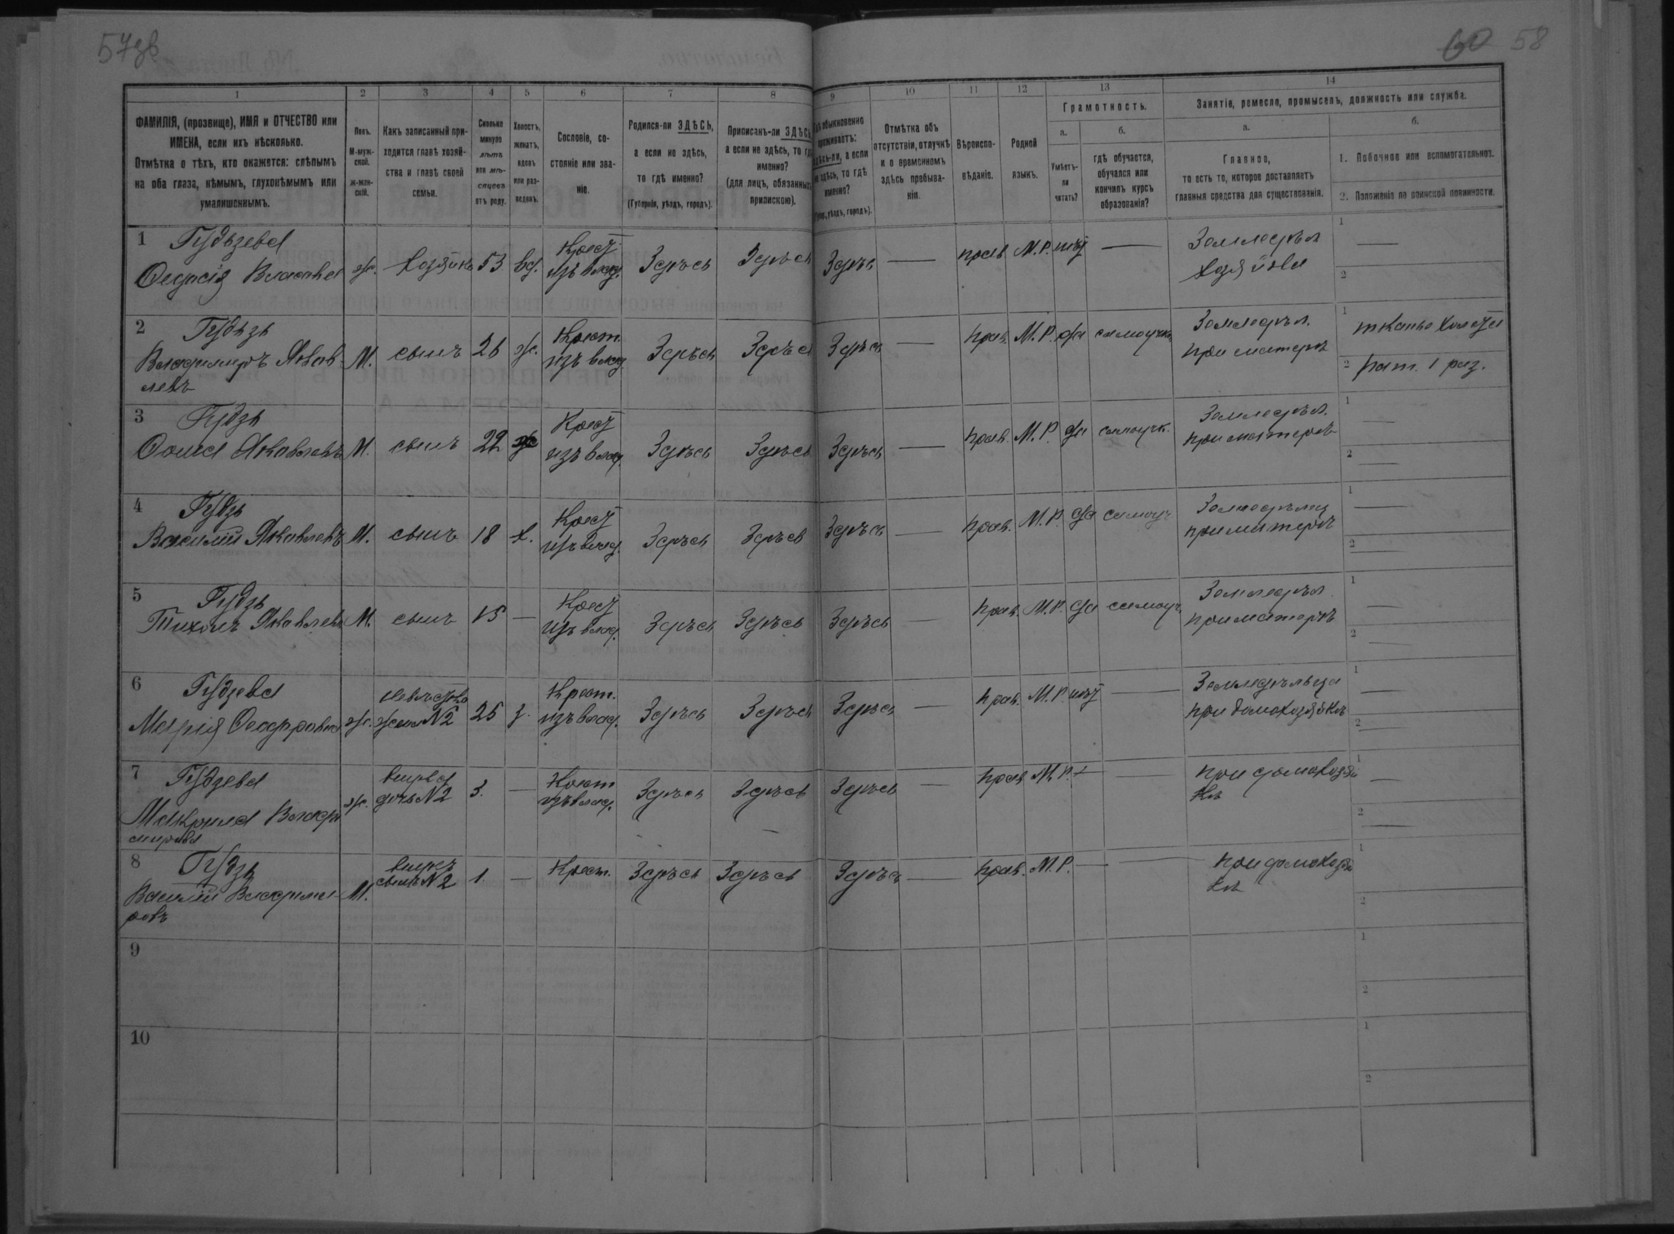 57зв
60 58
1
2
3
4
5
6
7
8
9
10
11
12
13
14
ФАМИЛІЯ, (прозвище), ИМЯ и ОТЧЕСТВО или
ИМЕНА, если ихъ нѣсколько.
Отмѣтка о тѣхъ, кто окажется: слѣпымъ
на оба глаза, нѣмымъ, глухонѣмымъ или
умалишеннымъ.
Полъ.
М-муж-
ской.
Ж-жен-
скій.
Какъ записанный при-
ходится главѣ хозяй-
ства и главѣ своей
семьи.
Сколько
минуло
лѣтъ
или мѣ-
сяцевъ
отъ роду.
Холостъ,
женатъ,
вдовъ
или раз-
веденъ.
Сословіе, со-
стояніе или зва-
ніе.
Родился-ли ЗДѢСЬ,
а если не здѣсь,
то гдѣ именно?
(Губернія, уѣздъ, городъ).
Приписанъ-ли ЗДѢСЬ,
а если не здѣсь, то гдѣ
именно?
(для лицъ, обязанныхъ
припискою).
обыкновенно
проживаетъ:
здѣсь-ли, а если
не здѣсь, то гдѣ
именно?
уѣздъ, городъ).
Отмѣтка объ
отсутствіи, отлучкѣ
и о временномъ
здѣсь пребыва-
ніи.
Вѣроиспо-
вѣданіе.
Родной
языкъ.
Грамотность.
а.
Умѣетъ-
ли
читать?
б.
гдѣ обучается,
обучался или
кончилъ курсъ
образованія?
Занятіе, ремесло, промыселъ, должность или служба.
а.
Главное,
то есть то, которое доставляетъ
главныя средства для существованія.
б.
1. Побочное или вспомогательное.
2. Положеніе по воинской повинности.
1 Гудзева
Федосія Власовна ж. хозяйка 53 вд. Крест из влад. Здѣсь Здѣсь Здѣсь — прав. М.Р. нѣт — Земледѣл хозяйка 1 — 2
2 Гудзь
Владимиръ Яков-
левъ М. сынъ 26 ж. Крест. изъ влад. Здѣсь Здѣсь Здѣсь — прав. М.Р. да самоучка Земледѣл. при матерѣ 1 тканье холста 2 рат. 1 раз.
3 Гудзь
Фома Яковлевъ М. сынъ 22 ж Крест изъ влад. Здѣсь Здѣсь Здѣсь — прав. М.Р. да самоучк. Земледѣл. при матерѣ 1 — 2 —
4 Гудзь
Василий Яковлевъ М. сынъ 18 х. Крест изъ влад. Здѣсь Здѣсь Здѣсь — прав. М.Р. да самоуч при матерѣ 1 — 2 —
5 Гудзь
Тихонъ Яковлевъ М. сынъ 15 — Крест изъ влад. Здѣсь Здѣсь Здѣсь — прав. М.Р. да самоуч. Земледѣл. при матерѣ 1 — 2 —
6 Гудзева
Марія Федоровна ж. невѣстка жена №2 25 з. Крест. изъ влад. Здѣсь Здѣсь Здѣсь — прав. М.Р. нѣт — Земледѣльца при домохозяйкѣ 1 — 2 —
7 Гудзева
Макрина Влади
мирова ж. дочь №2 3. — Крест изъ влад. Здѣсь Здѣсь Здѣсь прав. М.Р. — — при домохозяй
кѣ 1 — 2 —
8 Гудзь
Василий Владими-
ровъ М. внукъ сынъ №2 1. — Крест. Здѣсь Здѣсь Здѣсь — прав. М.Р. — — при домохозяй
кѣ 1 2
9 1 2
10 1 2